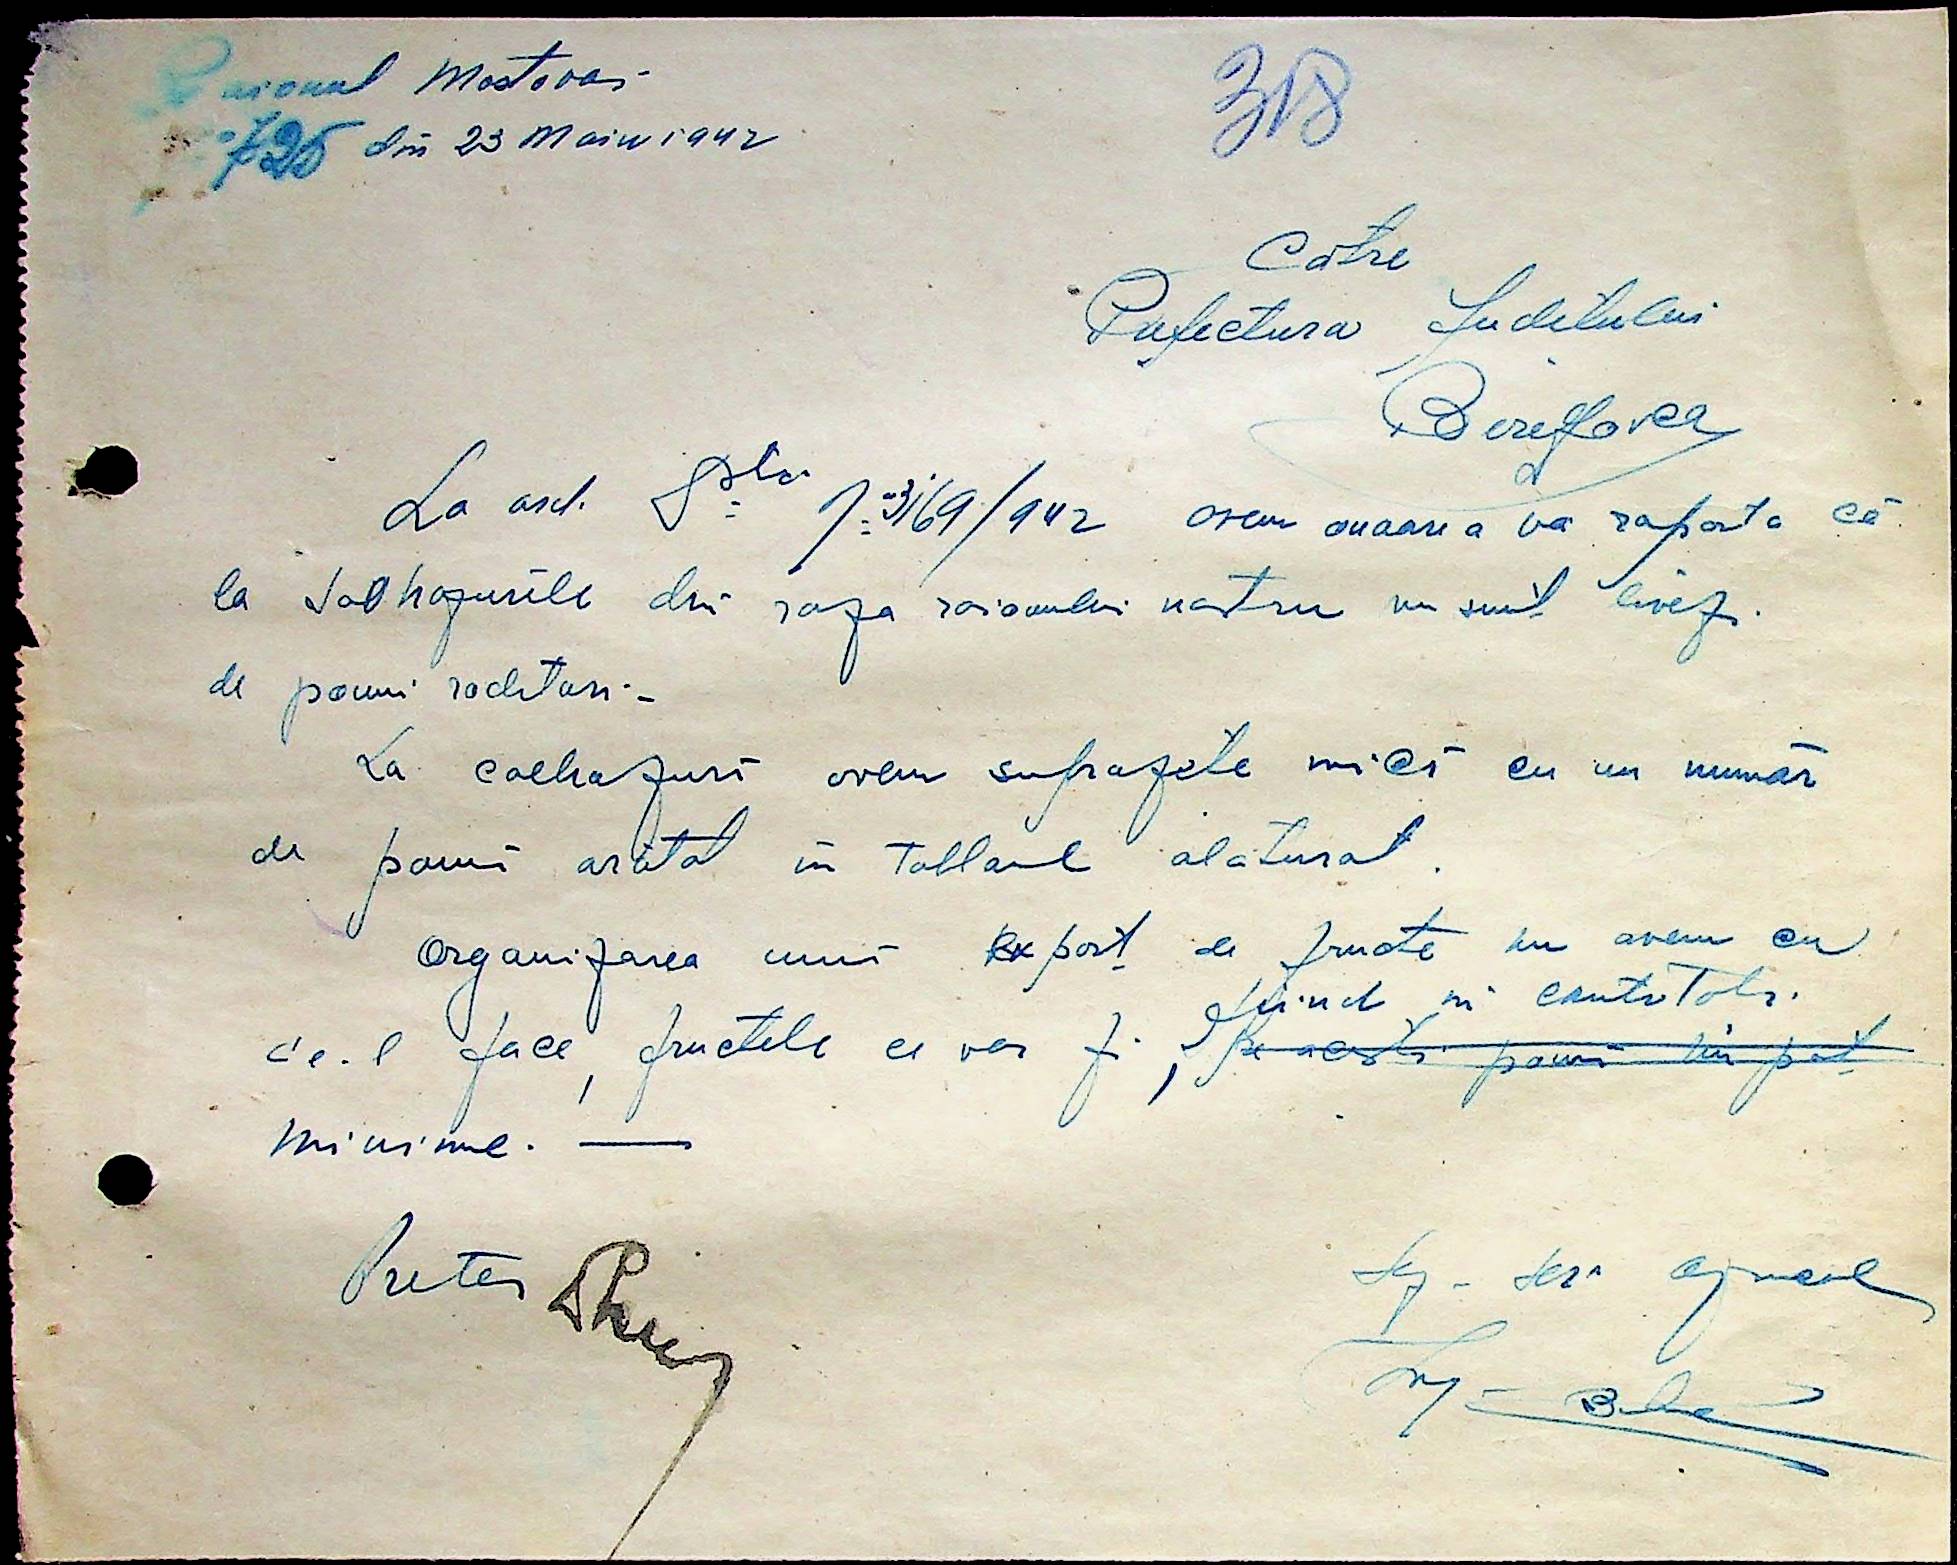 Raionul Mostovoi
No 725 din 23 Maiu 1942
318
Către
Prefectura Judetului
Berezovca
La ord. Dvs. No 3169/942 avem onoarea vă raporta că
la sovhozurile din raza raionului nostru nu sunt livezi
de pomi roditori. -
La colhozuri avem suprafețe mici cu un număr
de pomi arătat în tabloul alăturat.
Organizarea unui export de fructe nu avem cu
ce-l face, fructele ce vor fi,
fiind in cantităti
pe acesti pomi sin pot
minime. —
Pretor
Șef. Serv. Agricol
Ing.